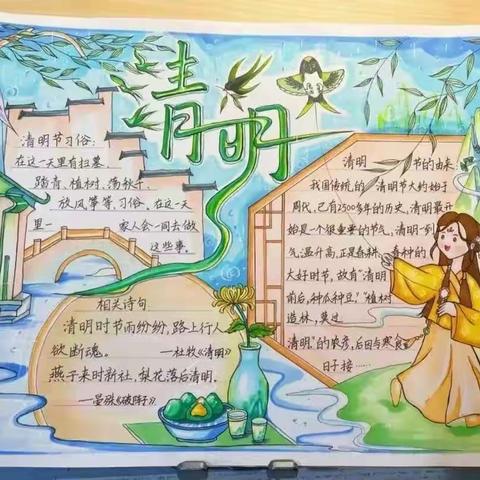 清明
清明节习俗:
在这一天里有扫墓、
踏青、植树、荡秋千、
放风筝等习俗。在这一天
里一 家人会一同去做
这些事。
清明 节的由来:
我国传统的 清明节大约始于
周代,已有2500多年的历史,清明最开
始是一个很重要的节气,清明一到
气温升高,正是春耕、春种的
大好时节,故有“清明
前后,种瓜种豆”“植树
造林,莫过
清明”的农彦,后因与寒食
日子接……
相关诗句
清明时节雨纷纷,路上行人
欲断魂。 —杜牧《清明》
燕子来时新社,梨花落后清明。
—晏殊《破阵子》